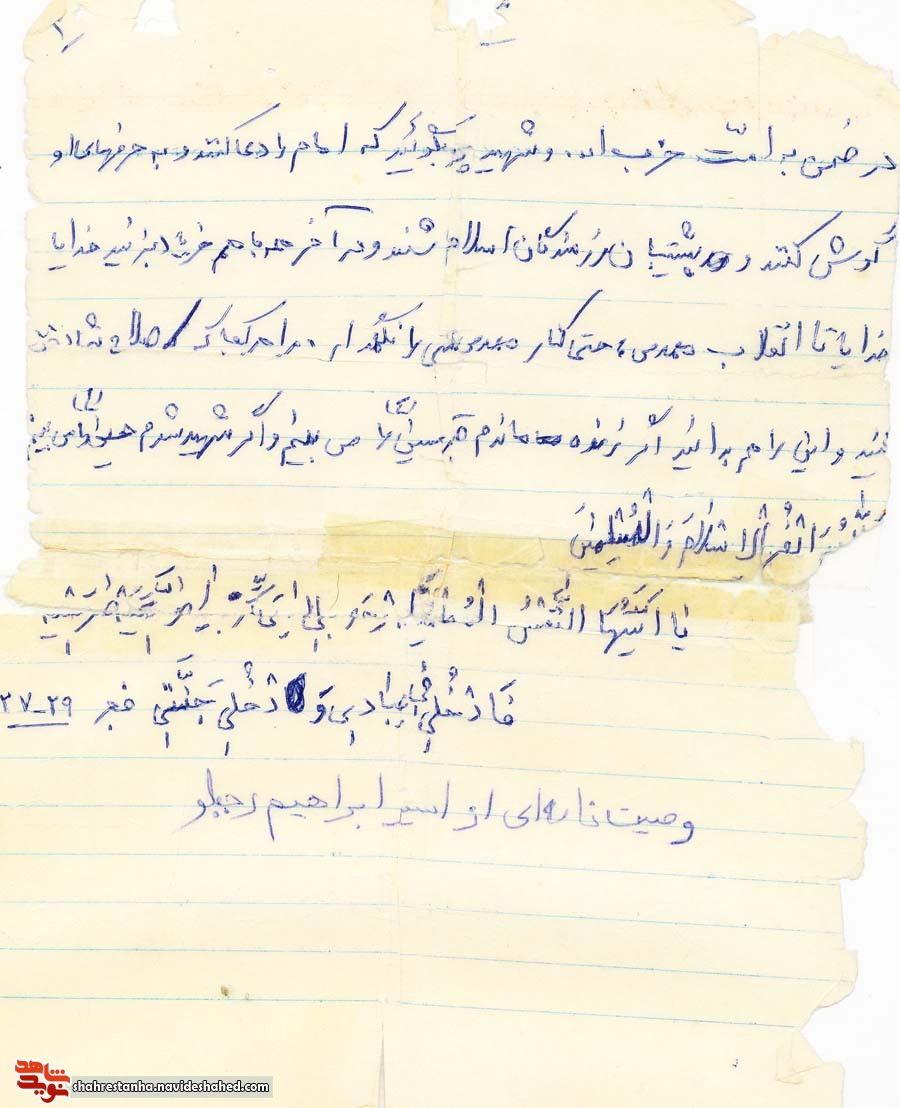 در ضمن به امّت حزب اله و شهید پرور بگوئید که امام را دعا کنند و به حرفهای او
گوش کنند و پشتیبان رزمندگان اسلام شوند و در آخر همه با هم فریاد بزنید خدایا
خدایا تا انقلاب مهدی حتی کنار مهدی خمینی را نگهدار . مرا هر کجا که صلاح
و این را هم بدانید اگر زنده ماندم قبر حسین (ع) را می بینم و اگر شهید شدم حسین (ع) را می بینم
انْصُرِ الْاِسْلامَ وَ الْمُسْلِمینَ
یا اَیَّتُهَا النَّفْسُ الْمُطْمَئِنَّةُ اِرْجِعی اِلی رَبِّکِ راضِیَةً مَرْضِیَّةً
فَادْخُلی فی عِبادی وَ ادْخُلی جَنَّتی فجر ۲۹-۲۷
وصیت نامه ای از اسیر ابراهیم رجبلو
نوید شاهد
shahrestanha.navideshahed.com